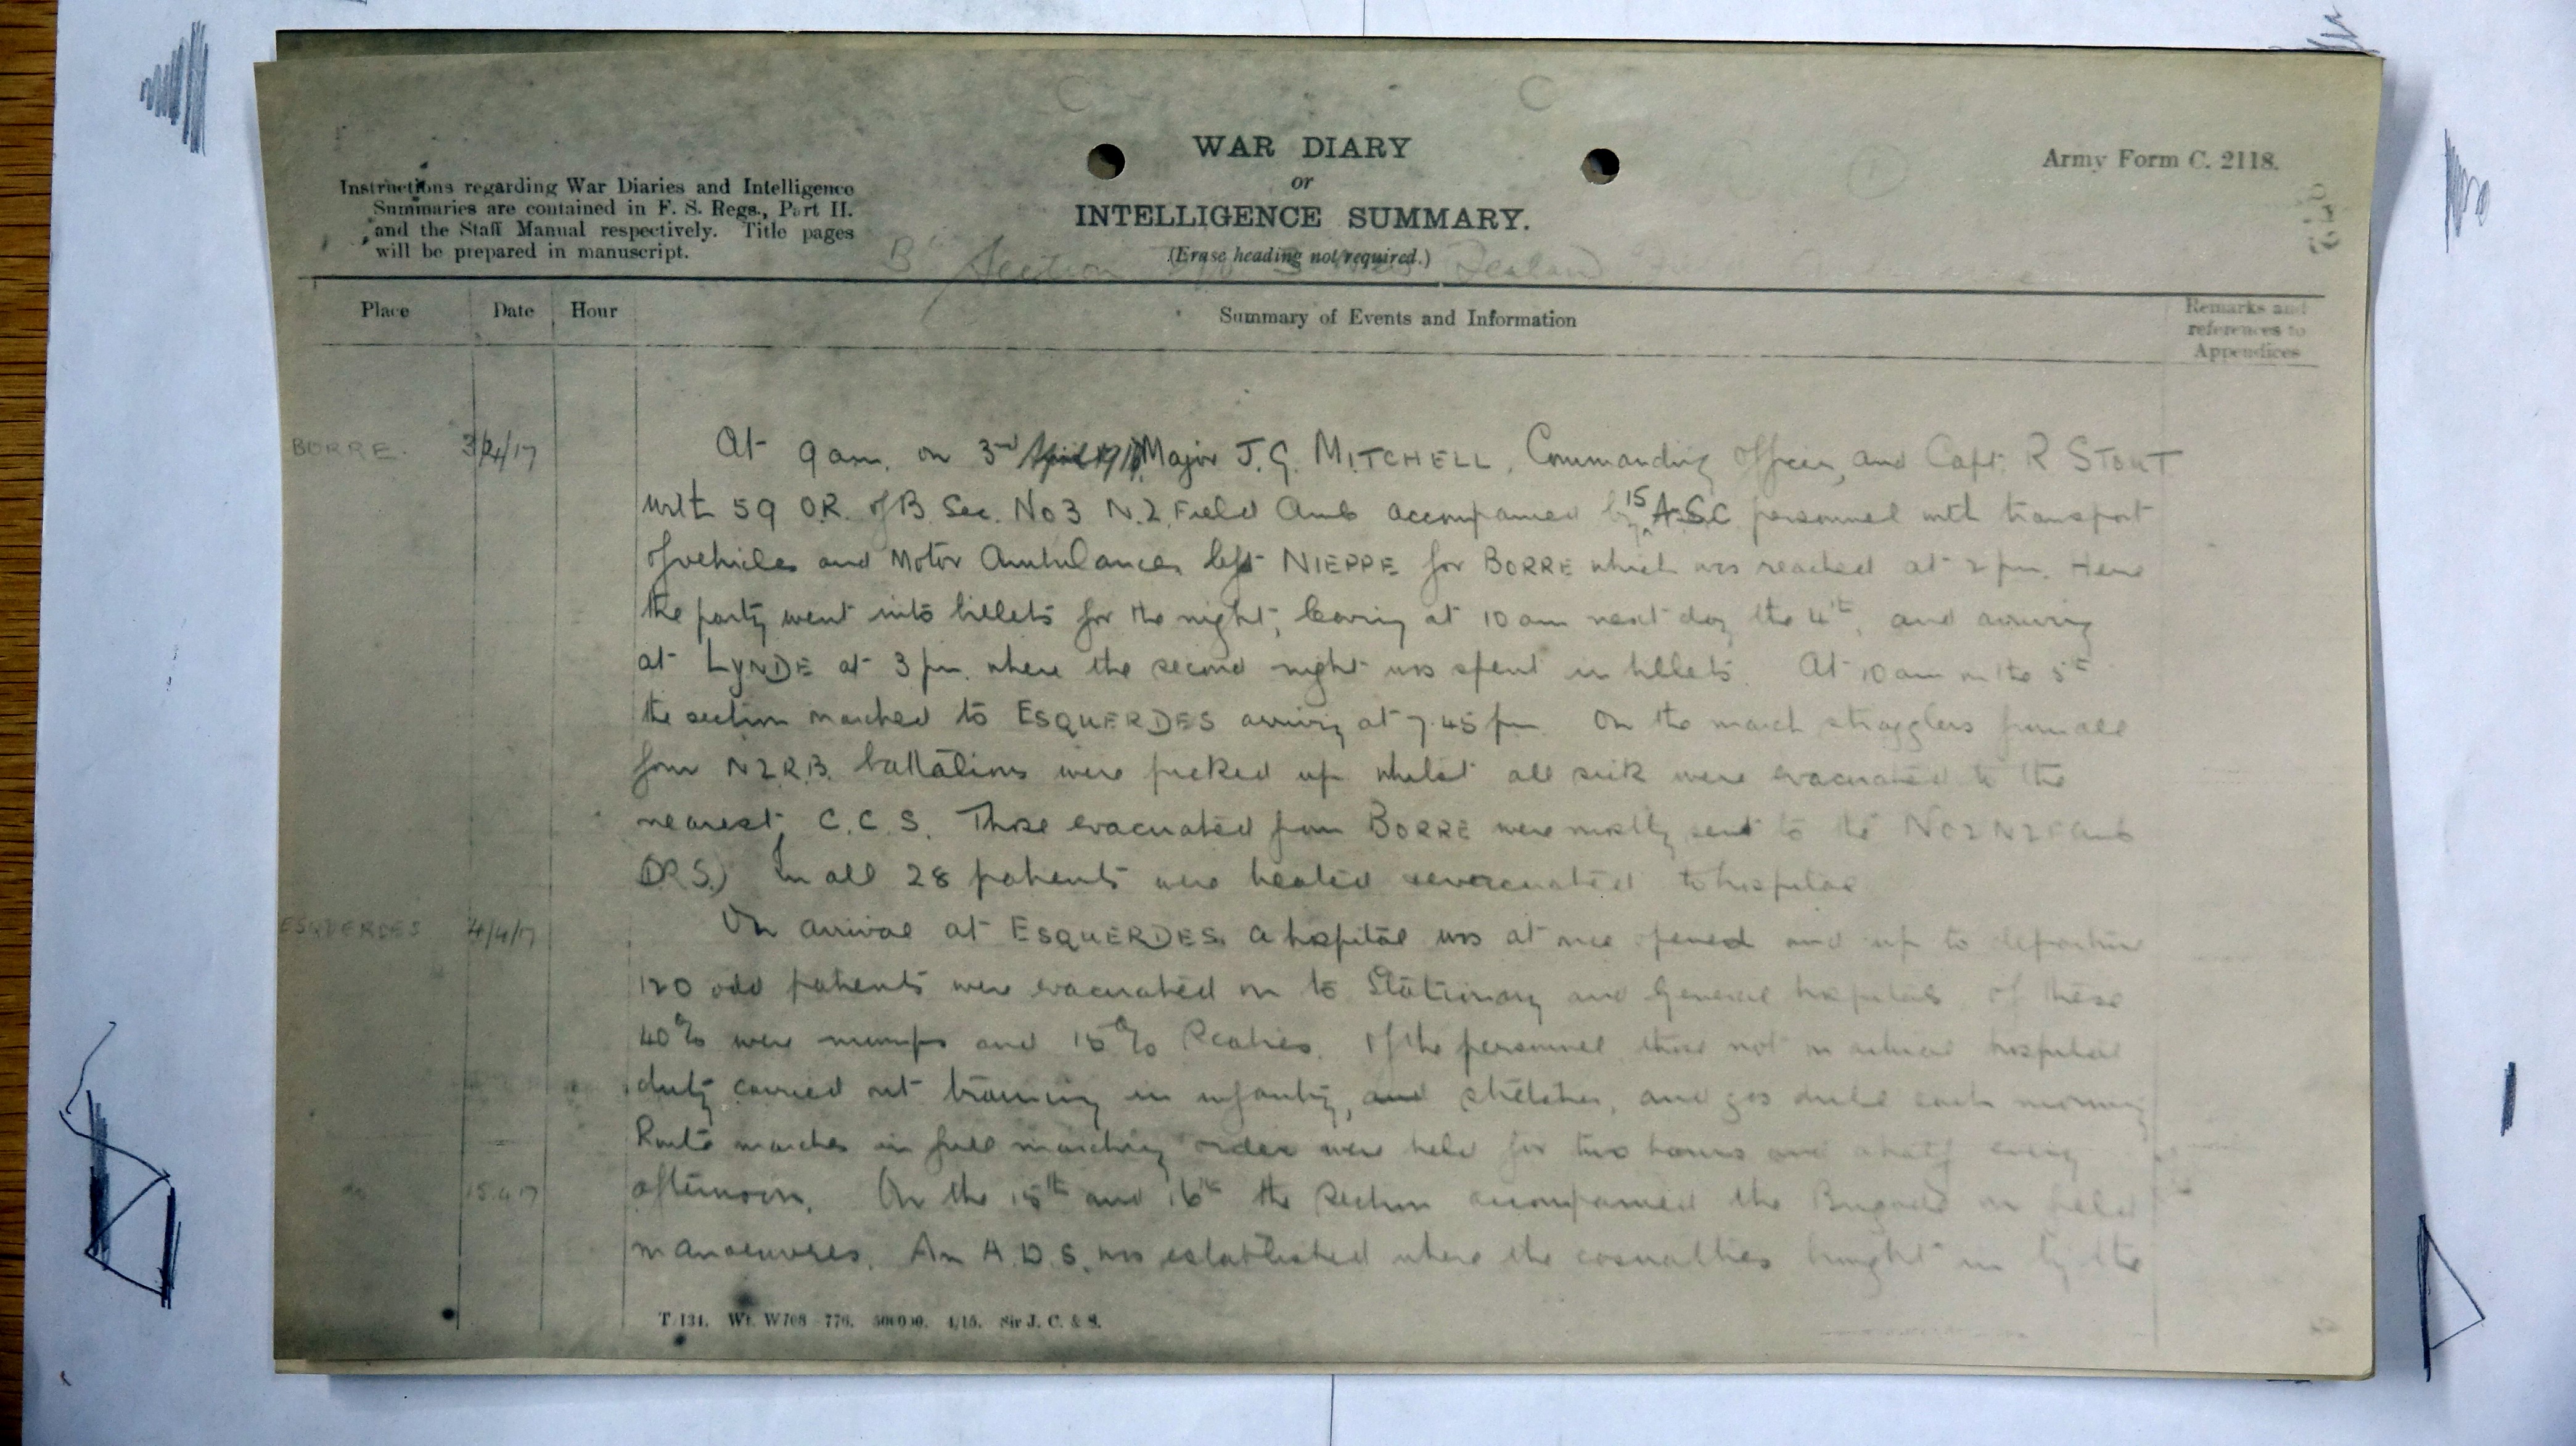 WAR DIARY
or
INTELLIGENCE SUMMARY.
(Erase heading not required.)
Army Form C. 2118.
Instructions regarding War Diaries and Intelligence
Summaries are contained in F. S. Regs., Part II.
and the Staff Manual respectively. Title pages
will be prepared in manuscript.
B Section No 3 New Zealand
Place Date Hour Summary of Events and Information Remarks and
references to
Appendices
BORRE. 3/4/17 At 9 am. on 3rd April 1917 Major J. G. MITCHELL, Commanding Officer, and Capt. R STOUT
with 59 O.R. of B Sec. No 3 N.Z. Field Amb accompanied by 15 A.S.C personnel with transport
of vehicles and Motor Ambulances left NIEPPE for BORRE which was reached at 2 pm. Here
the party went into billets for the night, leaving at 10 am next day the 4th, and arriving
at LYNDE at 3 pm. where the second night was spent in billets. At 10 am on the 5th
the section marched to ESQUERDES arriving at 7.45 pm. On the march stragglers from all
four N Z R.B. battalions were picked up whilst all sick were evacuated to the
nearest C.C.S. Those evacuated from BORRE were mostly sent to the No 2 N Z F Amb
(D.R.S.) In all 28 patients were treated evacuated to hospital
ESQUERDES 4/4/17 On arrival at ESQUERDES a hospital was at once opened and up to departure
120 odd patients were evacuated on to Stationary and General hospitals of these
40% were mumps and 15% Scabies. Of the personnel those not on actual hospital
duty carried out training in infantry, and stretcher, and gas drill each morning
Route marches in full marching order were held for two hours and a half every
do 15.4.17 afternoon. On the 15th and 16th the Section accompanied the Brigade on field
manoeuvres. An A.D.S. was established where the casualties brought in by the
T.134. Wt. W708—776. 500000. 4/15. Sir J. C. & S.